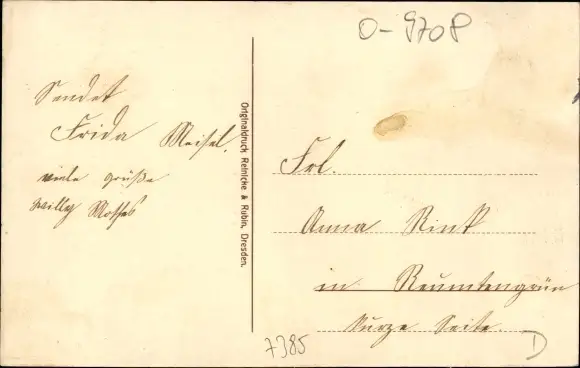 O-9708
Sendet
Frida Meisel.
viele grüße
Willy
Originaldruck Reinicke & Rubin, Dresden.
Frl.
Anna Rink
in Reumtengrün
Kurze Seite.
7385
D